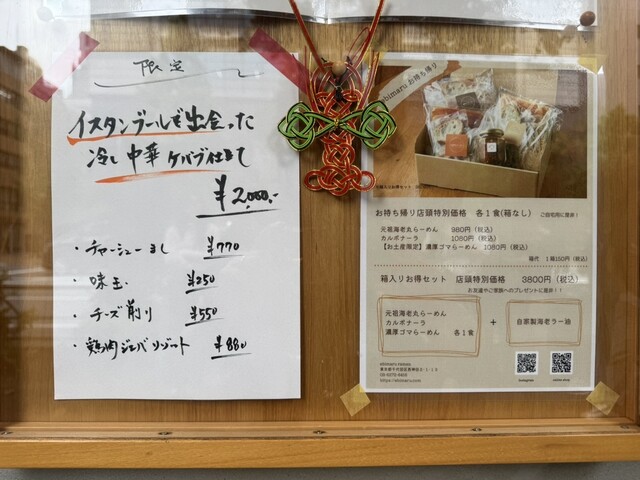 限定
イスタンブールで出会った
冷し中華ケバブ仕立て
¥2,000.-
・チャーシュー増し ¥770
・味玉 ¥250
・チーズ削り ¥550
・鶏肉ジェノバリゾット ¥880
ebimaru お持ち帰り
お持ち帰り店頭特別価格 各1食(箱なし) ご自宅用に是非!
元祖海老丸らーめん 980円(税込)
カルボナーラ 1080円(税込)
【お土産限定】濃厚ゴマらーめん 1080円(税込)
箱代 1箱150円(税込)
箱入りお得セット 店頭特別価格 3800円(税込)
お友達やご家族へのプレゼントに是非!!
元祖海老丸らーめん
カルボナーラ
濃厚ゴマらーめん 各1食
+
自家製海老ラー油